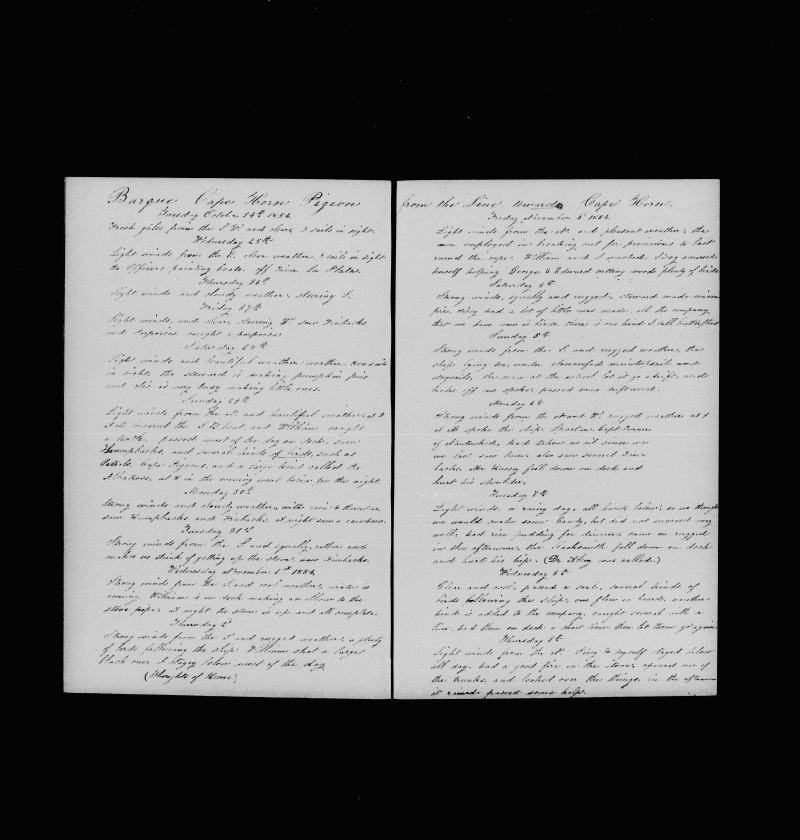 Barque Cape Horn Pigeon
Tuesday October 24th 1854
Fresh gales from the S.W. and clear, 3 sails in sight.
Wednesday 25th
Light winds from the E. clear weather, 3 sails in sight
the Officers painting boats. off River La Plata.
Thursday 26th
Light winds and cloudy weather, steering S.
Friday 27th
Light winds, and clear, steering W. saw Finbacks
and porpoises, caught a porpoise.
Saturday 28th
Light winds and beautiful weather, two sails
in sight, the steward is making pumpkin pies
and also is very busy making little ones.
Sunday 29th
Light winds from the N. and beautiful weather, at
lowered the S.B. boat and William caught
a turtle. passed most of the day on deck, saw
Humpbacks, and several kinds of birds, such as
Petrels, Cape Pigeons, and a large kind called the
Albatross, at 8 in the evening went below for the night.
Monday 30th
Strong winds and cloudy weather, with rain & thunder,
saw Humpbacks and Finbacks at night saw a rainbow.
Tuesday 31st
Strong winds from the S. and squally, rather cool
makes us think of getting up the stove, saw Finbacks.
Wednesday November 1st 1854
Strong winds from the S. and cool weather, winter is
coming. William is on deck making an elbow to the
stove pipe, at night the stove is up and all complete.
Thursday 2d
Strong winds from the S. and rugged weather, a plenty
of birds following the ship. William shot a large
black one. I stayed below most of the day
(Thoughts of Home)
from the Line towards Cape Horn.
Friday November 3d 1854
Light winds from the N. and pleasant weather, the
men employed in breaking out for provisions to last
round the cape. William and I washed.
herself helping George & Edward cutting woods plenty of birds
Saturday 4th
Strong winds, squally and rugged, steward made mince
pies, had a lot of little ones made. all the company
that we have now is birds. there is one kind I call butterflies
Sunday 5th
Strong winds from the S. and rugged weather, the
ship laying too, under closereefed maintopsail and
staysails, the man at the wheel let it go adrift, and
broke off one spoke. passed some driftwood.
Monday 6th
Strong winds from the S and W. rugged weather at 9
at M. spoke the ship Capt Turner
of Nantucket, had taken no oil since we
we last saw him. also saw several Fin-
backs. Mr fell down on deck and
hurt his shoulder.
Tuesday 7th
Light winds. a rainy day, all hands below, so we thought
we would make some candy, but did not succeed very
well, had rice pudding for dinner, came on rugged
in the afternoon, the blacksmith fell down on deck
and hurt his hip. (Dr. was called.)
Wednesday 8th
Clear and cool, passed a seal, several kinds of
birds following the ship, one flew on board, another
kind is added to the company, caught several with a
line, had them on deck a short time, then let them go again
Thursday 9th
Light winds from the N. & myself stayed below
all day. had a good fire in the stove, opened one of
the trunks, and looked over the things, in the afternoon
it rained. passed some kelp.